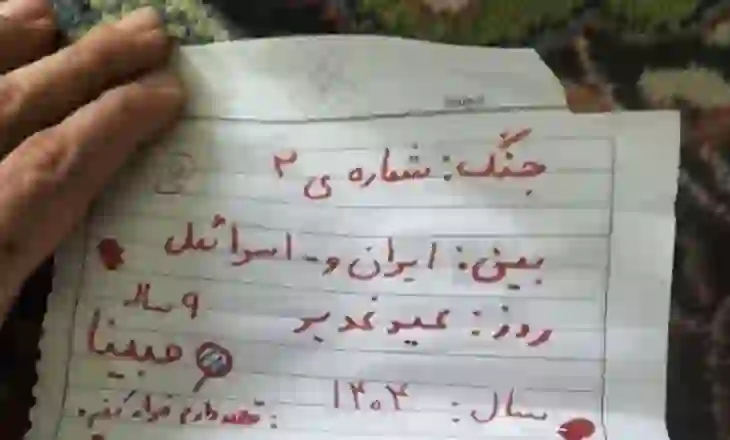 جنگ: شماره ی ۲
بین: ایران و - اسرائیل
روز: عید غدیر
۹ ساله
مبینا
سال: ۱۴۰۴